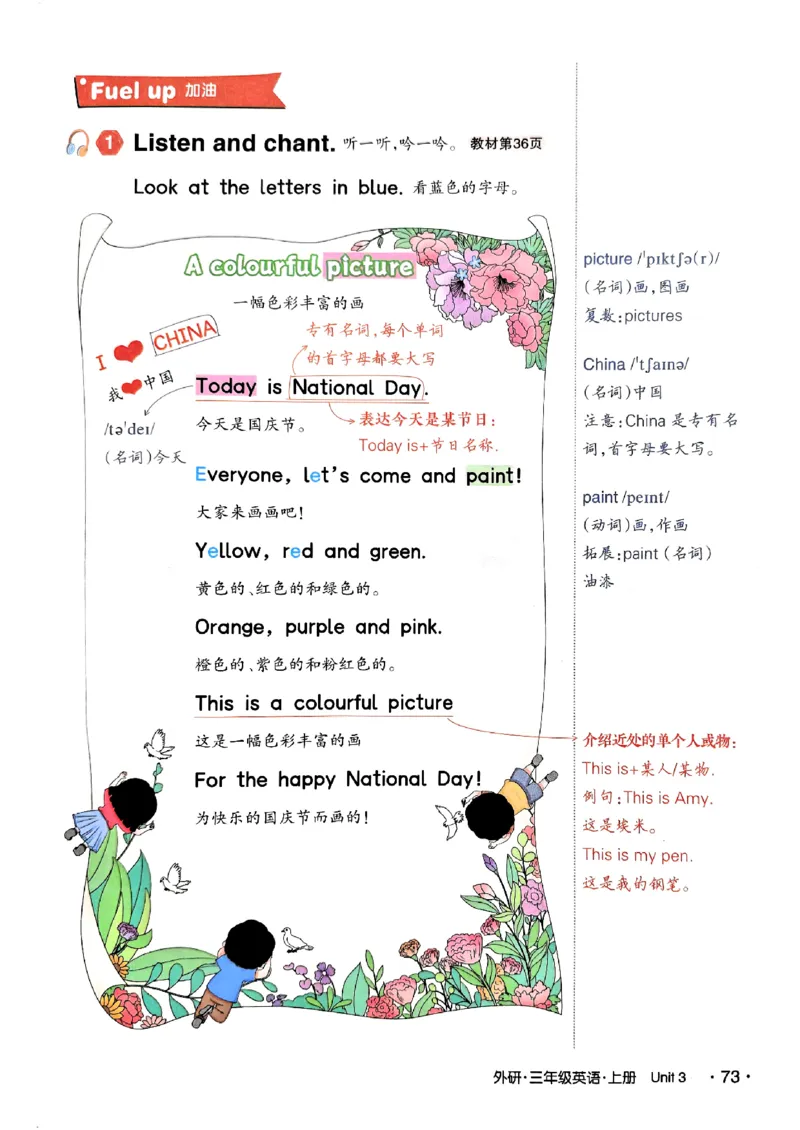 Fuel up 加油
1 Listen and chant. 听一听,吟一吟。 教材第36页
Look at the letters in blue. 看蓝色的字母。
A colourful picture
一幅色彩丰富的画
I ❤ CHINA
我❤中国
专有名词,每个单词
的首字母都要大写
Today is National Day.
/təˈdeɪ/
(名词)今天
今天是国庆节。
表达今天是某节日:
Today is+节日名称.
Everyone, let's come and paint!
大家来画画吧!
Yellow, red and green.
黄色的、红色的和绿色的。
Orange, purple and pink.
橙色的、紫色的和粉红色的。
This is a colourful picture
这是一幅色彩丰富的画
For the happy National Day!
为快乐的国庆节而画的!
picture /ˈpɪktʃə(r)/
(名词)画,图画
复数:pictures
China /ˈtʃaɪnə/
(名词)中国
注意:China 是专有名
词,首字母要大写。
paint /peɪnt/
(动词)画,作画
拓展:paint (名词)
油漆
介绍近处的单个人或物:
This is+某人/某物.
例句:This is Amy.
这是埃米。
This is my pen.
这是我的钢笔。
外研·三年级英语·上册 Unit 3 ·73·